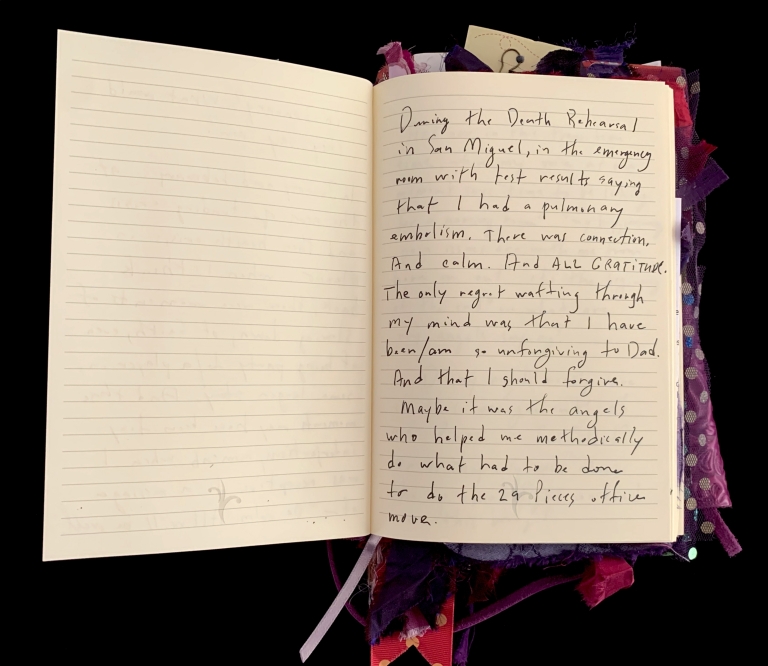 During the Death Rehearsal
in San Miguel, in the emergency
room with test results saying
that I had a pulmonary
embolism. There was connection.
And calm. And ALL GRATITUDE.
The only regret wafting through
my mind was that I have
been/am so unforgiving to Dad.
And that I should forgive.
Maybe it was the angels
who helped me methodically
do what had to be done
to do the 29 Pieces office
move.